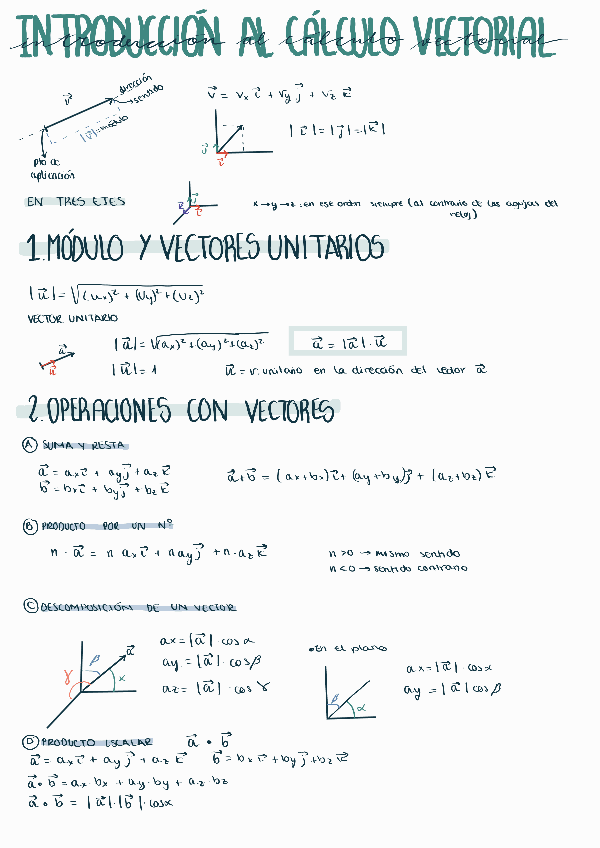 INTRODUCCIÓN AL CÁLCULO VECTORIAL
introducción al cálculo vectorial
dirección
sentido
v⃗
|v⃗| = módulo
pto de
aplicación
v⃗ = vx i⃗ + vy j⃗ + vz k⃗
|i⃗| = |j⃗| = |k⃗|
j⃗
i⃗
EN TRES EJES
x → y → z : en ese orden siempre (al contrario de las agujas del
reloj)
1. MÓDULO Y VECTORES UNITARIOS
|u⃗| = √(ux)² + (uy)² + (uz)²
VECTOR UNITARIO
a⃗
u⃗
|a⃗| = √(ax)² + (ay)² + (az)²
a⃗ = |a⃗| · u⃗
|u⃗| = 1
u⃗ = v. unitario en la dirección del vector a⃗
2. OPERACIONES CON VECTORES
A SUMA Y RESTA
a⃗ = ax i⃗ + ay j⃗ + az k⃗
b⃗ = bx i⃗ + by j⃗ + bz k⃗
a⃗ + b⃗ = (ax + bx) i⃗ + (ay + by) j⃗ + (az + bz) k⃗
B PRODUCTO POR UN Nº
n · a⃗ = n ax i⃗ + n ay j⃗ + n · az k⃗
n > 0 → mismo sentido
n < 0 → sentido contrario
C DESCOMPOSICIÓN DE UN VECTOR
a⃗
β
γ
α
ax = |a⃗| · cos α
ay = |a⃗| · cos β
az = |a⃗| · cos γ
• En el plano
β
α
ax = |a⃗| · cos α
ay = |a⃗| cos β
D PRODUCTO ESCALAR a⃗ • b⃗
a⃗ = ax i⃗ + ay j⃗ + az k⃗ b⃗ = bx i⃗ + by j⃗ + bz k⃗
a⃗ • b⃗ = ax · bx + ay · by + az · bz
a⃗ • b⃗ = |a⃗| · |b⃗| · cos α